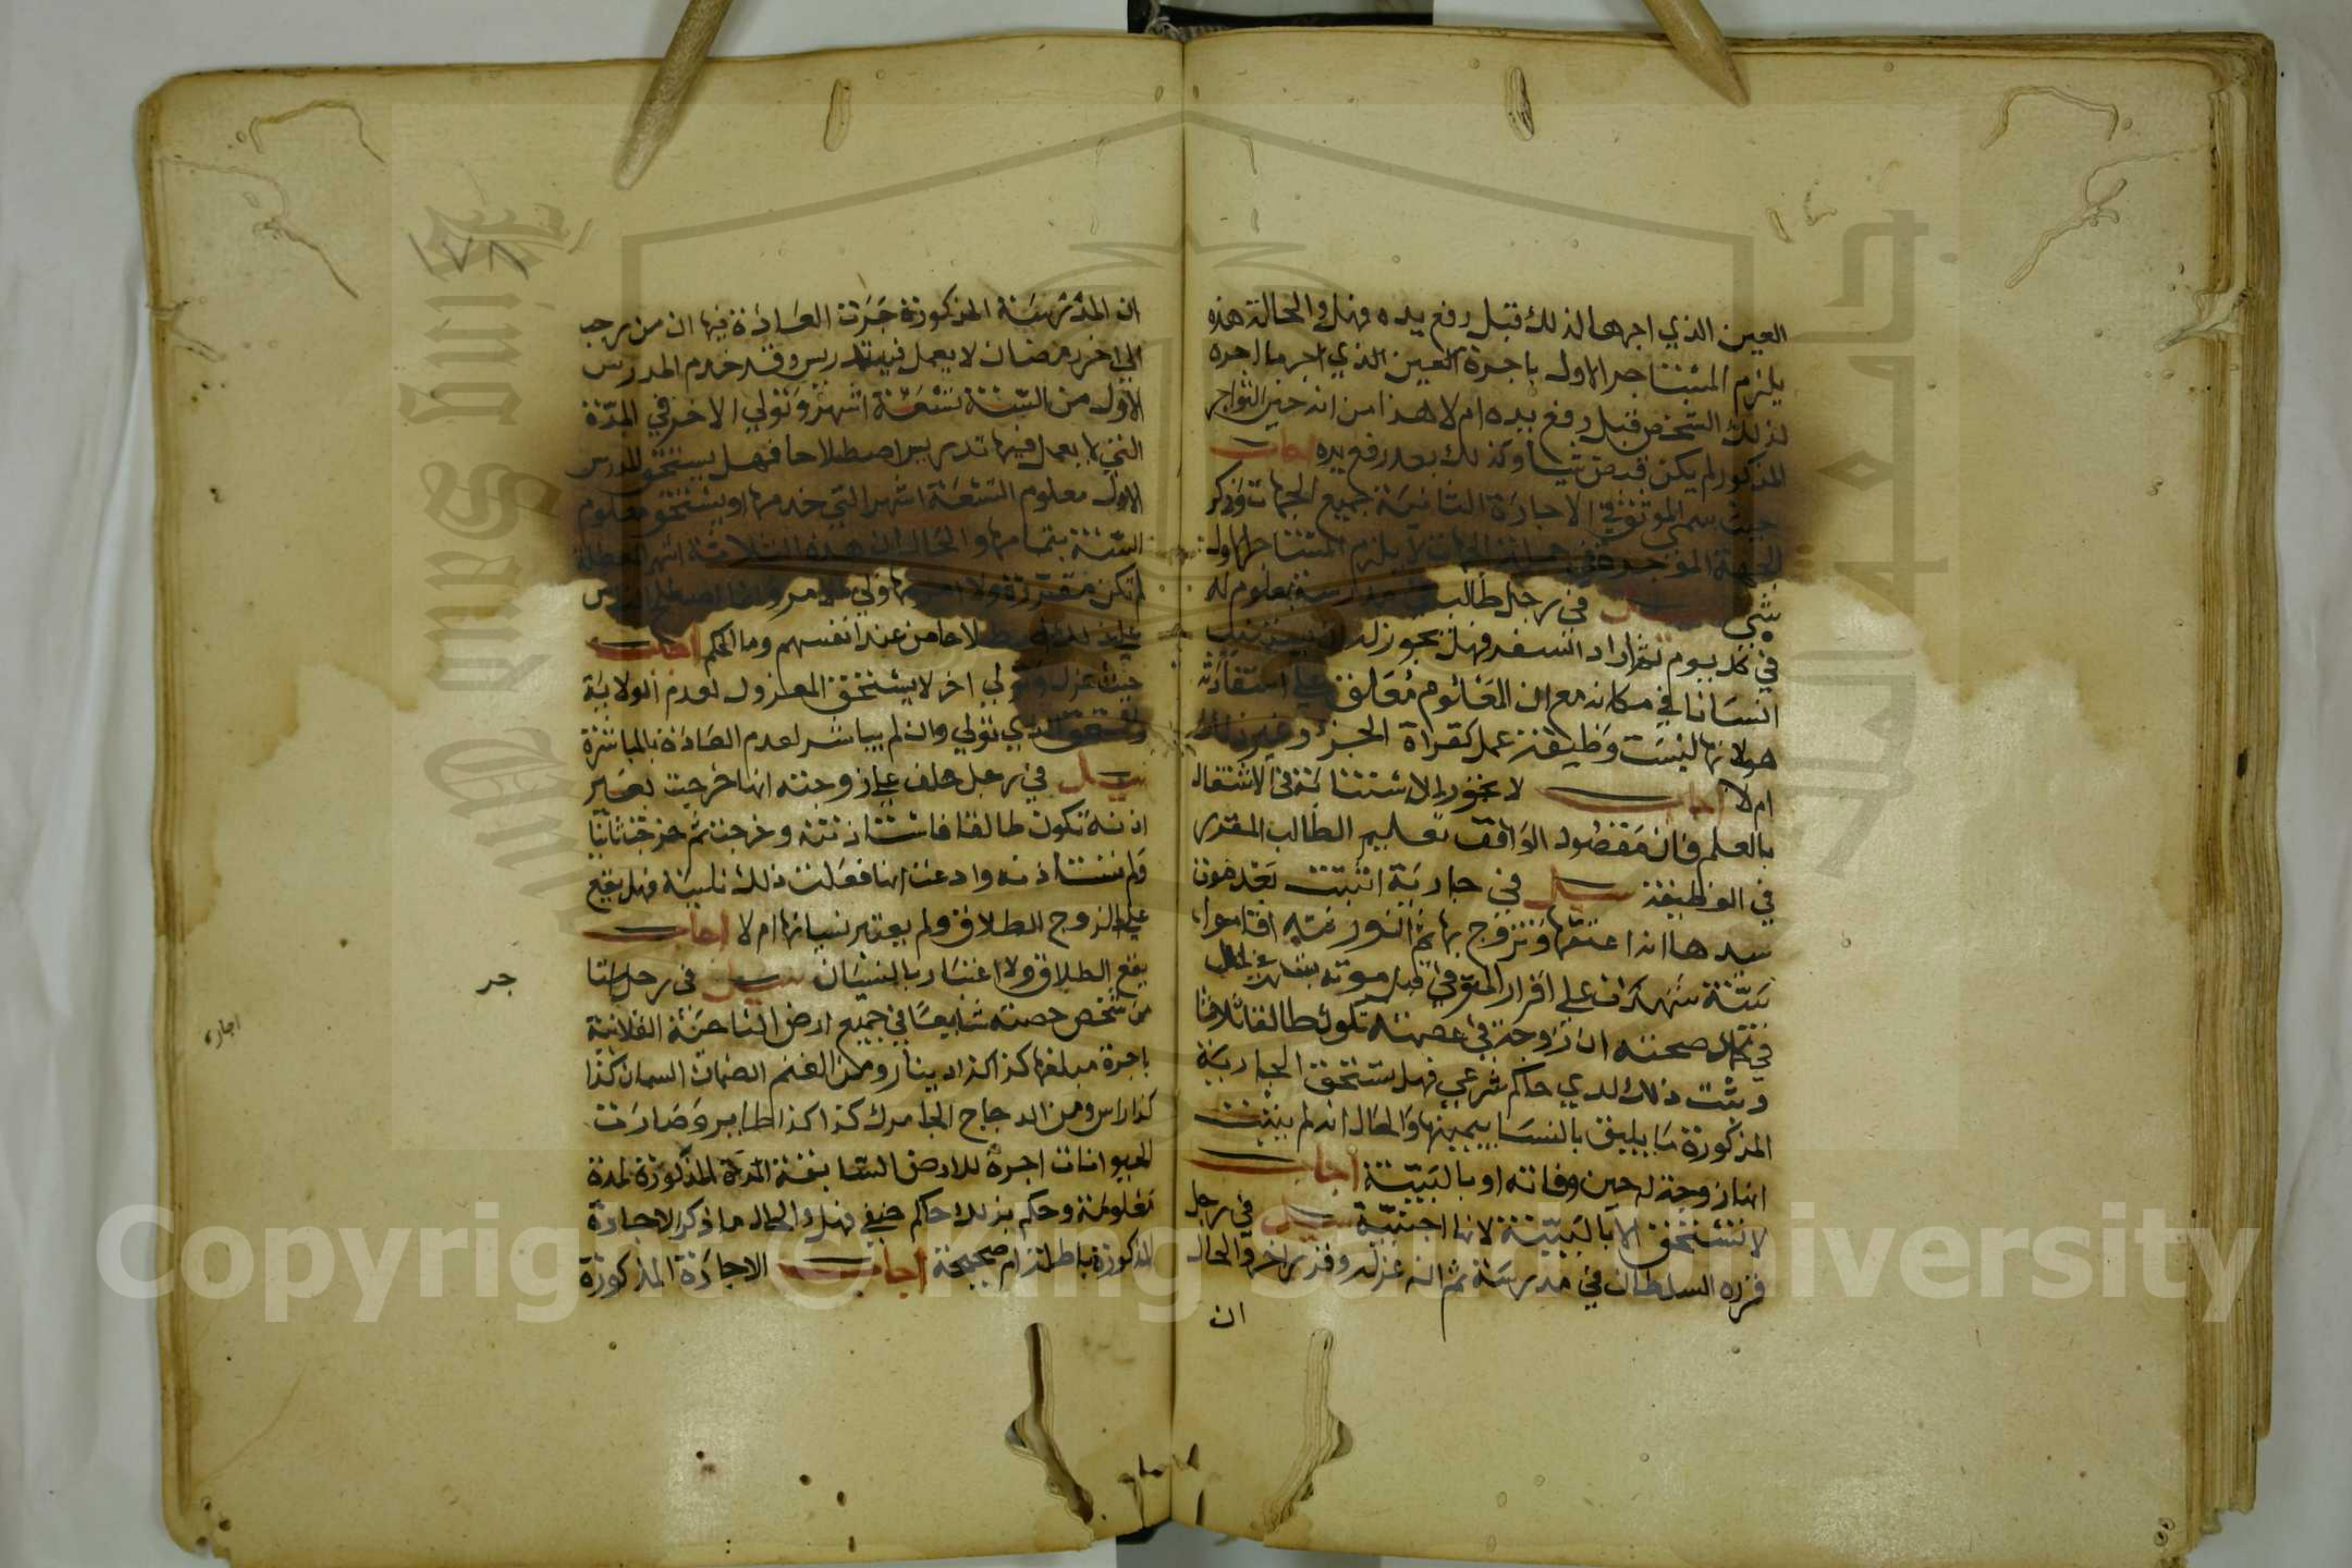 العين الذي اجرها لذلك قبل رفع يده فهل والحالة هذه
يلزم المستاجر الاول باجرة العين الذي اجر ما اجره
لذلك الشخص قبل رفع يده ام لا هذا من انه حين التواجر
المذكور لم يكن قبض شيا وكذلك بعد رفع يده اجاب
حيث سمى الموثق في الاجارة الثانية جميع الجهات وذكر
الجهة لا يلزم المستاجر الاول
شي في رجل طالب في مدرسة بمعلوم له
في كل يوم ثم اراد السفر فهل يجوز له ان يستنيب
انسانا في مكانه مع ان المعلوم معلق على استفادته
هو لانها ليست وظيفة عمل كقراة الجزء وغير ذلك
ام لا اجاب لا يجوز الاستنابة في الاشتغال
بالعلم فان مقصود الواقف تعليم الطالب المقرر
في الوظيفة سيل في جارية اثبتت بعد موت
سيدها انه اعتقها وتزوج بها ثم ان ورثته اقاموا
بينة شهدت على اقرار المتوفي قبل موته
في حال صحته ان زوجته في عصمته تكون طالقا ثلاثا
وثبت ذلك لدي حاكم شرعي فهل تستحق الجارية
المذكورة ما يليق بالنساء بيمينها والحال انه لم يثبت
انها زوجة له حين وفاته او بالبينة اجاب
لا تستحق الا بالبينة لانها اجنبية سيل في رجل
قرره السلطان في مدرسة ثم انه عزله وقرر اخر والحال
ان
١٧٨
ان المدرسة المذكورة جرت العادة فيها ان من رجب
الي اخر رمضان لا يعمل فيها تدريس وقد خدم المدرس
الاول من السنة تسعة اشهر وتولي الاخر في المدة
التي لا يعمل فيها تدريس اصطلاحا فهل يستحق المدرس
الاول معلوم التسعة اشهر التي خدمها او يستحق معلوم
السنة بتمامها والحال ان هذه الثلاثة اشهر العطلة
لم تكن مقررة ولا
على ذلك اصطلاحا من عند انفسهم وما الحكم اجاب
حيث عزل وتولي اخر لا يستحق المعزول لعدم الولاية
ويستحق الذي تولي وان لم يباشر لعدم العادة بالمباشرة
سيل في رجل حلف علي زوجته انها خرجت بغير
اذنه تكون طالقا فاستاذنته وخرجت ثم خرجت ثانيا
ولم تستاذنه وادعت انها فعلت ذلك ناسية فهل يقع
على الزوج الطلاق ولم يعتبر نسيانها ام لا اجاب
يقع الطلاق ولا اعتبار بالنسيان سيل في رجل استا
جر
من شخص حصته شايعا في جميع ارض الناحية الفلانية
اجاره
باجرة مبلغها كذا كذا دينار ومن الغنم الضان السمان كذا
كذا راس ومن الدجاج كذا كذا طاير وصارت
الحيوانات اجرة للارض السابقة المدة المذكورة لمدة
معلومة وحكم بذلك حاكم حنفي فهل والحال ما ذكر الاجارة
المذكورة باطلة ام صحيحة اجاب الاجارة المذكورة
Copyright © King Saud University